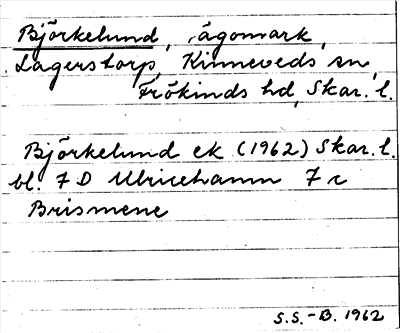 Björkelund, ägomark,
Lagerstorp, Kinneveds sn,
Frökinds hd, Skar. l.
Björkelund ek (1962) Skar. l.
bl. 7 D Ulricehamn 7 c
Brismene
S.S.-B. 1962